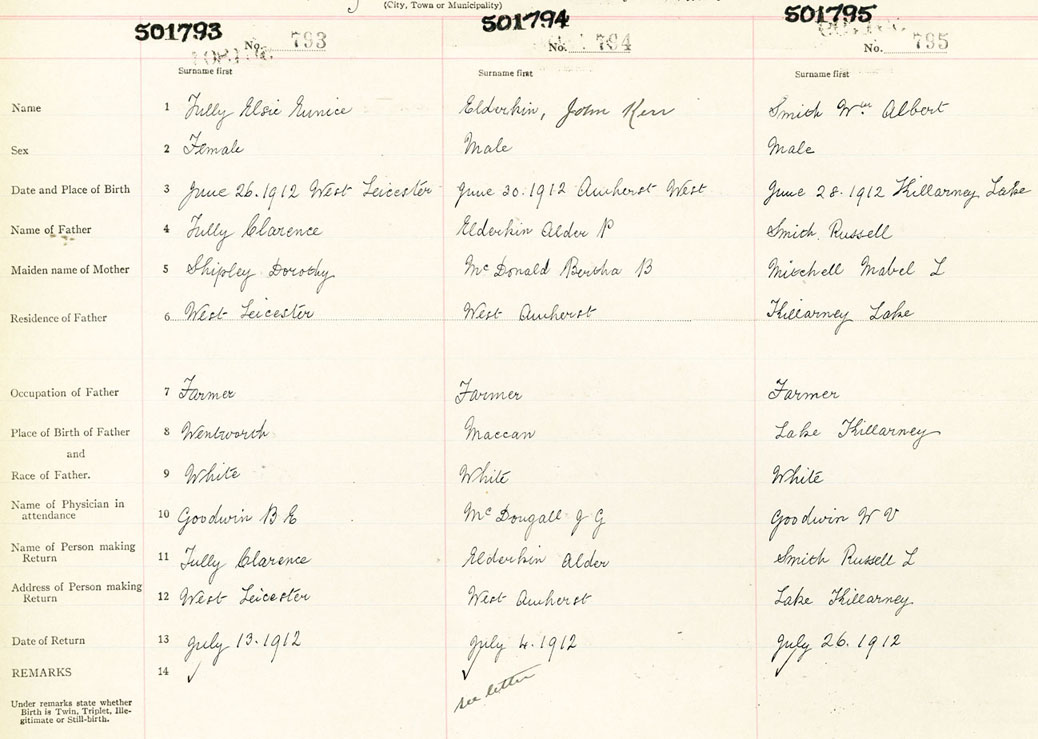 (City, Town or Municipality)
501793 501794 501795
No. 793 No. 794 No. 795
Surname first Surname first Surname first
Name 1 Fully Elsie Eunice Elderkin, John Kerr Smith Wm Albert
Sex 2 Female Male Male
Date and Place of Birth 3 June 26.1912 West Leicester June 30.1912 Amherst West June 28.1912 Killarney Lake
Name of Father 4 Fully Clarence Elderkin Alder P Smith Russell
Maiden name of Mother 5 Shipley Dorothy McDonald Bertha B Mitchell Mabel L
Residence of Father 6 West Leicester West Amherst Killarney Lake
Occupation of Father 7 Farmer Farmer Farmer
Place of Birth of Father 8 Wentworth Maccan Lake Killarney
and
Race of Father. 9 White White White
Name of Physician in
attendance 10 Goodwin B E McDougall J G Goodwin W V
Name of Person making
Return 11 Fully Clarence Elderkin Alder Smith Russell L
Address of Person making
Return 12 West Leicester West Amherst Lake Killarney
Date of Return 13 July 13.1912 July 4.1912 July 26.1912
REMARKS 14
see letter
Under remarks state whether
Birth is Twin, Triplet, Ille-
gitimate or Still-birth.